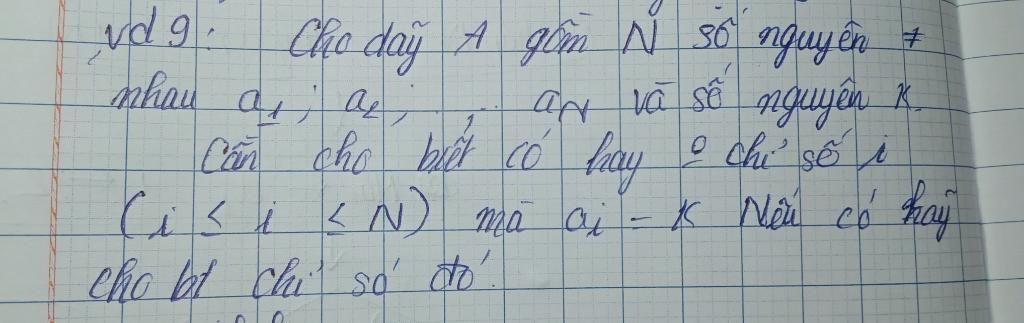 vd 9: Cho dãy A gồm N số nguyên ≠
nhau a1; a2; ... aN và số nguyên K.
Cần cho biết có hay o chỉ số i
(i ≤ i ≤ N) mà ai = K Nếu có hãy
cho bt chỉ số đó.